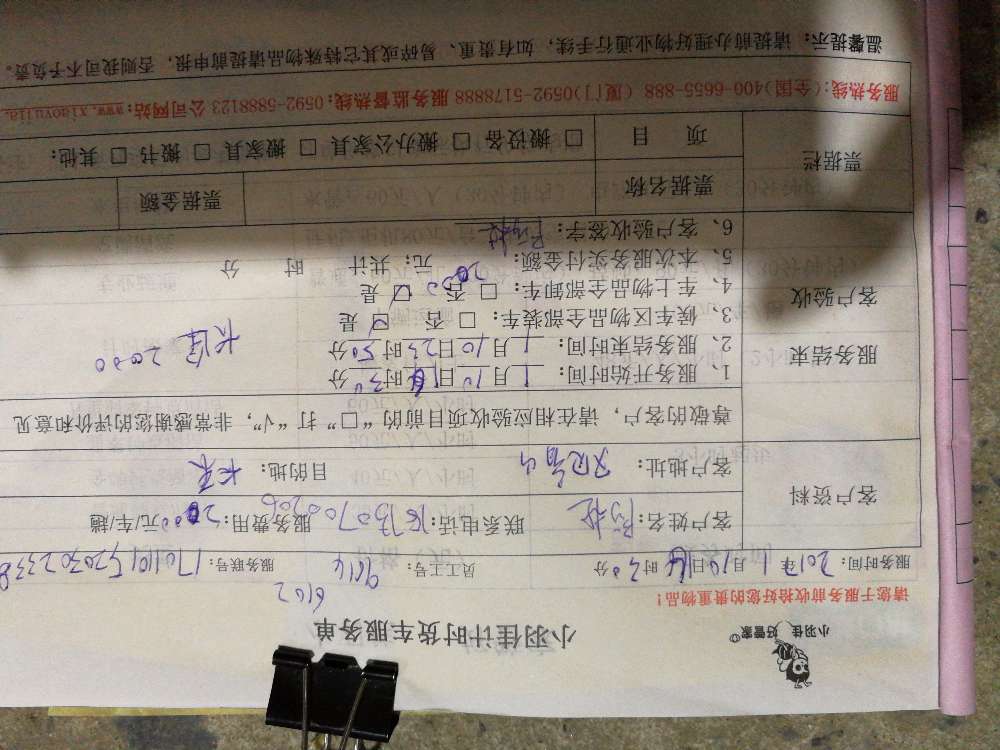 小羽佳 好管家
小羽佳计时货车服务单
6102
请您于服务前收拾好您的贵重物品！
服务时间：2017年1月10日16时30分 员工工号：9614 服务联号：
客户资料
客户姓名： 联系电话： 服务费用：2000元/车/趟
客户地址： 目的地：长乐
尊敬的客户，请在相应验收项目前的“□”打“√”，非常感谢您的评价和意见
服务结束
客户验收
1、服务开始时间：1月10日16时30分
2、服务结束时间：1月10日23时50分
3、候车区物品全部装车：□ 否 □ 是
4、车上物品全部卸车：□ 否 □ 是
5、本次服务实付金额：2000元；共计 时 分
6、客户验收签字：
2000
票据栏
票据名称 票据金额
项 目 □ 搬设备 □ 搬办公家具 □ 搬家具 □ 搬书 □ 其他：
服务热线：(全国)400-6655-888 (厦门)0592-5178888 服务监督热线：0592-5888123 公司网站：www.xiaoyujia.
温馨提示：请提前办理好物业通行手续，如有贵重、易碎或其它特殊物品请提前申报，否则我司不予负责。